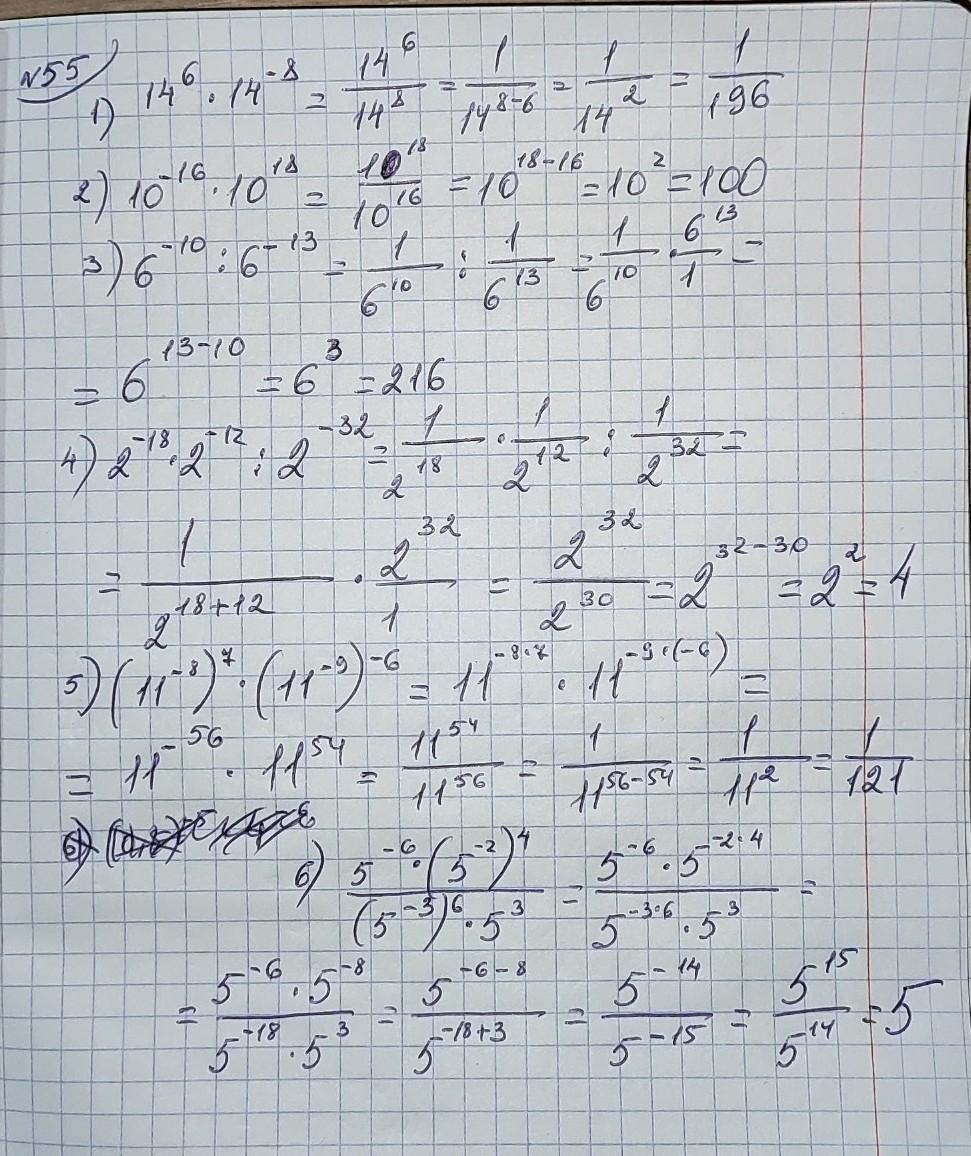 №55
1) 14^6 · 14^-8 = 14^6/14^8 = 1/14^(8-6) = 1/14^2 = 1/196
2) 10^-16 · 10^18 = 10^18/10^16 = 10^(18-16) = 10^2 = 100
3) 6^-10 : 6^-13 = 1/6^10 : 1/6^13 = 1/6^10 · 6^13/1 =
= 6^(13-10) = 6^3 = 216
4) 2^-18 · 2^-12 : 2^-32 = 1/2^18 · 1/2^12 : 1/2^32 =
= 1/2^(18+12) · 2^32/1 = 2^32/2^30 = 2^(32-30) = 2^2 = 4
5) (11^-8)^7 · (11^-9)^-6 = 11^(-8·7) · 11^(-9·(-6)) =
= 11^-56 · 11^54 = 11^54/11^56 = 1/11^(56-54) = 1/11^2 = 1/121
6) (5^-6 · (5^-2)^4)/((5^-3)^6 · 5^3) = (5^-6 · 5^(-2·4))/(5^(-3·6) · 5^3) =
= (5^-6 · 5^-8)/(5^-18 · 5^3) = 5^(-6-8)/5^(-18+3) = 5^-14/5^-15 = 5^15/5^14 = 5